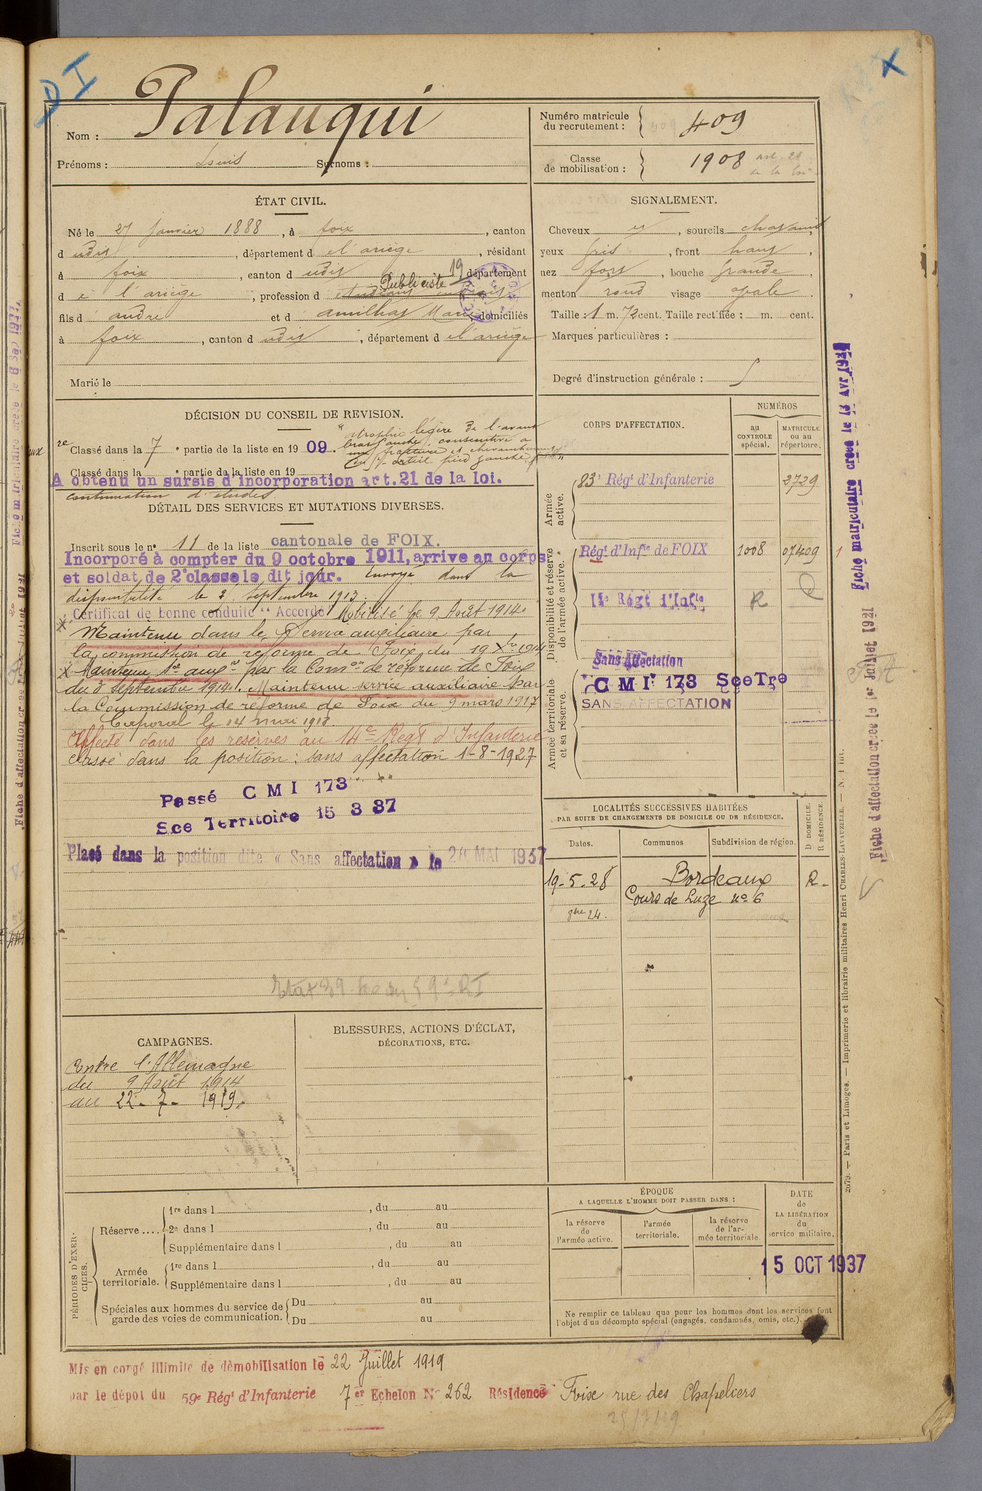 DI
X
Nom : Palauqui
Prénoms : Louis Surnoms :
Numéro matricule du recrutement : 409
Classe de mobilisation : 1908
ÉTAT CIVIL.
Né le 27 Janvier 1888, à foix, canton
d udis, département d el'ariège, résidant
à foix, canton d udis département
d e l'ariège, profession d Publiciste 19
fils d andré et d Amilhat Marie domiciliés
à foix, canton d udis, département d el'ariège
Marié le
SIGNALEMENT.
Cheveux , sourcils châtains
yeux gris, front haut,
nez fort, bouche grande,
menton rond visage ovale.
Taille : 1 m. 72 cent. Taille rectifiée : m. cent.
Marques particulières :
Degré d'instruction générale :
DÉCISION DU CONSEIL DE REVISION.
atrophie légère de l'avant
bras gauche, consécutive à
une fracture et chevauchement
Classé dans la 7e partie de la liste en 1909.
Classé dans la e partie de la liste en 19
A obtenu un sursis d'incorporation art. 21 de la loi.
continuation d'études
DÉTAIL DES SERVICES ET MUTATIONS DIVERSES.
Inscrit sous le no 11 de la liste cantonale de FOIX.
Incorporé à compter du 9 octobre 1911, arrive au corps
et soldat de 2e classe le dit jour. Envoyé dans la
disponibilité le 2 septembre 1913.
Certificat de bonne conduite "Accordé" Mobilisé le 9 Août 1914.
X Maintenu dans le Service auxiliaire par
la commission de réforme de Foix, du 19 Xbre 1914
X Maintenu sce auxre par la Comon de réforme de Foix
du 8 septembre 1914. Maintenu service auxiliaire par
la Commission de réforme de Foix du 9 mars 1917
Caporal le 14 mai 1918
Affecté dans les réserves au 14e Régt d'Infanterie
Classé dans la position : sans affectation 1-8-1927
Passé C M I 173
Sce Territoire 15 3 37
Placé dans la position dite « Sans affectation » le 24 MAI 1937
CORPS D'AFFECTATION.
NUMÉROS
au CONTROLE spécial.
MATRICULE ou au répertoire.
Armée active.
83e Régt d'Infanterie 3729
Disponibilité et réserve de l'armée active.
Régt d'Infie de FOIX 1008 07409
14e Régt d'Infie R
Sans Affectation
Armée territoriale et sa réserve.
C M I 173 Sce Tre
SANS AFFECTATION
LOCALITÉS SUCCESSIVES HABITÉES
PAR SUITE DE CHANGEMENTS DE DOMICILE OU DE RÉSIDENCE.
D DOMICILE. R RÉSIDENCE.
Dates. Communes Subdivision de région.
19-5-28 Bordeaux R-
Cours de Luze no 6
CAMPAGNES.
Contre l'Allemagne
du 9 Août 1914
au 22-7-1919.
BLESSURES, ACTIONS D'ÉCLAT,
DÉCORATIONS, ETC.
PÉRIODES D'EXERCICES.
Réserve..... 1re dans l , du au
2e dans l , du au
Supplémentaire dans l , du au
Armée territoriale. 1re dans l , du au
Supplémentaire dans l , du au
Spéciales aux hommes du service de garde des voies de communication. Du au
Du au
ÉPOQUE
A LAQUELLE L'HOMME DOIT PASSER DANS :
la réserve de l'armée active.
l'armée territoriale.
la réserve de l'armée territoriale
DATE de LA LIBÉRATION du service militaire.
15 OCT 1937
Ne remplir ce tableau que pour les hommes dont les services font
l'objet d'un décompte spécial (engagés, condamnés, omis, etc.).
Mis en congé illimité de démobilisation le 22 Juillet 1919
par le dépôt du 59e Régt d'Infanterie 7er Echelon No 262 Résidence Foix rue des Chapeliers
Fiche matriculaire créée le 13 Avr 1937
Fiche d'affectation créée le 1er Juillet 1921
2679. — Paris et Limoges. — Imprimerie et librairie militaires Henri CHARLES-LAVAUZELLE. —